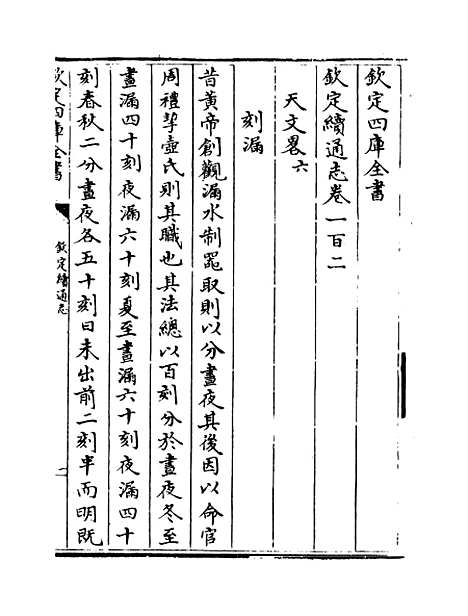 欽定四庫全書
欽定續通志卷一百二
天文畧六
刻漏
昔黃帝創觀漏水制噐取則以分晝夜其後因以命官
周禮挈壺氏則其職也其法總以百刻分於晝夜冬至
晝漏四十刻夜漏六十刻夏至晝漏六十刻夜漏四十
刻春秋二分晝夜各五十刻日未出前二刻半而明既
欽定四庫全書
欽定續通志
一